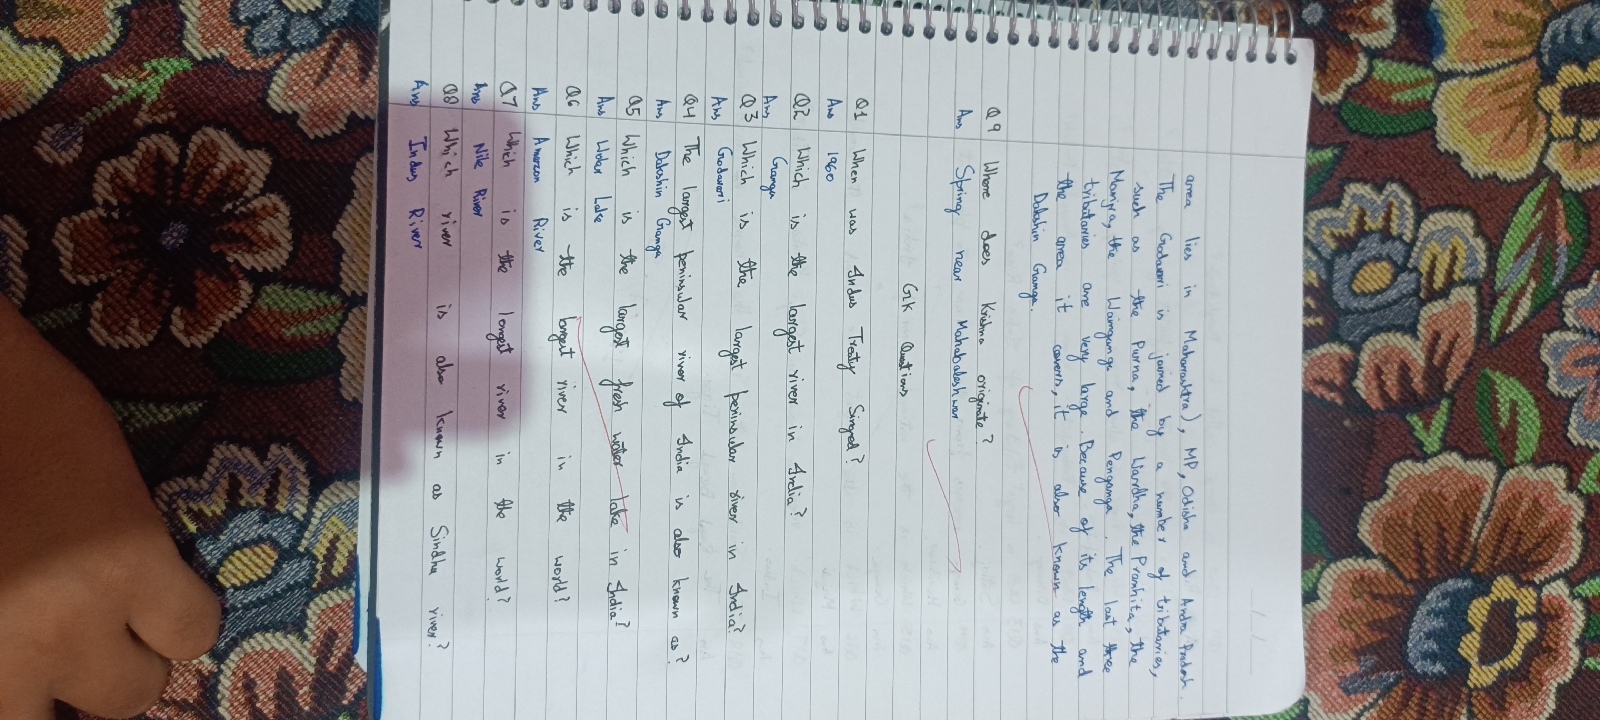 area lies in Maharashtra), MP, Odisha and Andra Pradesh.
The Godavari is joined by a number of tributaries,
such as the Purna, the Wardha, the Pranhita, the
Manjra, the Wainganga and Penganga. The last three
tributaries are very large. Because of its length and
the area it covers, it is also known as the
Dakshin Ganga.
Q9 Where does Krishna originate?
Ans Spring near Mahabaleshwar
GK Questions
Q1 When was Indus Treaty Singed?
Ans 1960
Q2 Which is the largest river in India?
Ans Ganga
Q3 Which is the largest peninsular river in India?
Ans Godavari
Q4 The largest peninsular river of India is also known as?
Ans Dakshin Ganga
Q5 Which is the largest fresh water lake in India?
Ans Wular Lake
Q6 Which is the largest river in the world?
Ans Amazon River
Q7 Which is the longest river in the world?
Ans Nile River
Q8 Which river is also known as Sindhu river?
Ans Indus River